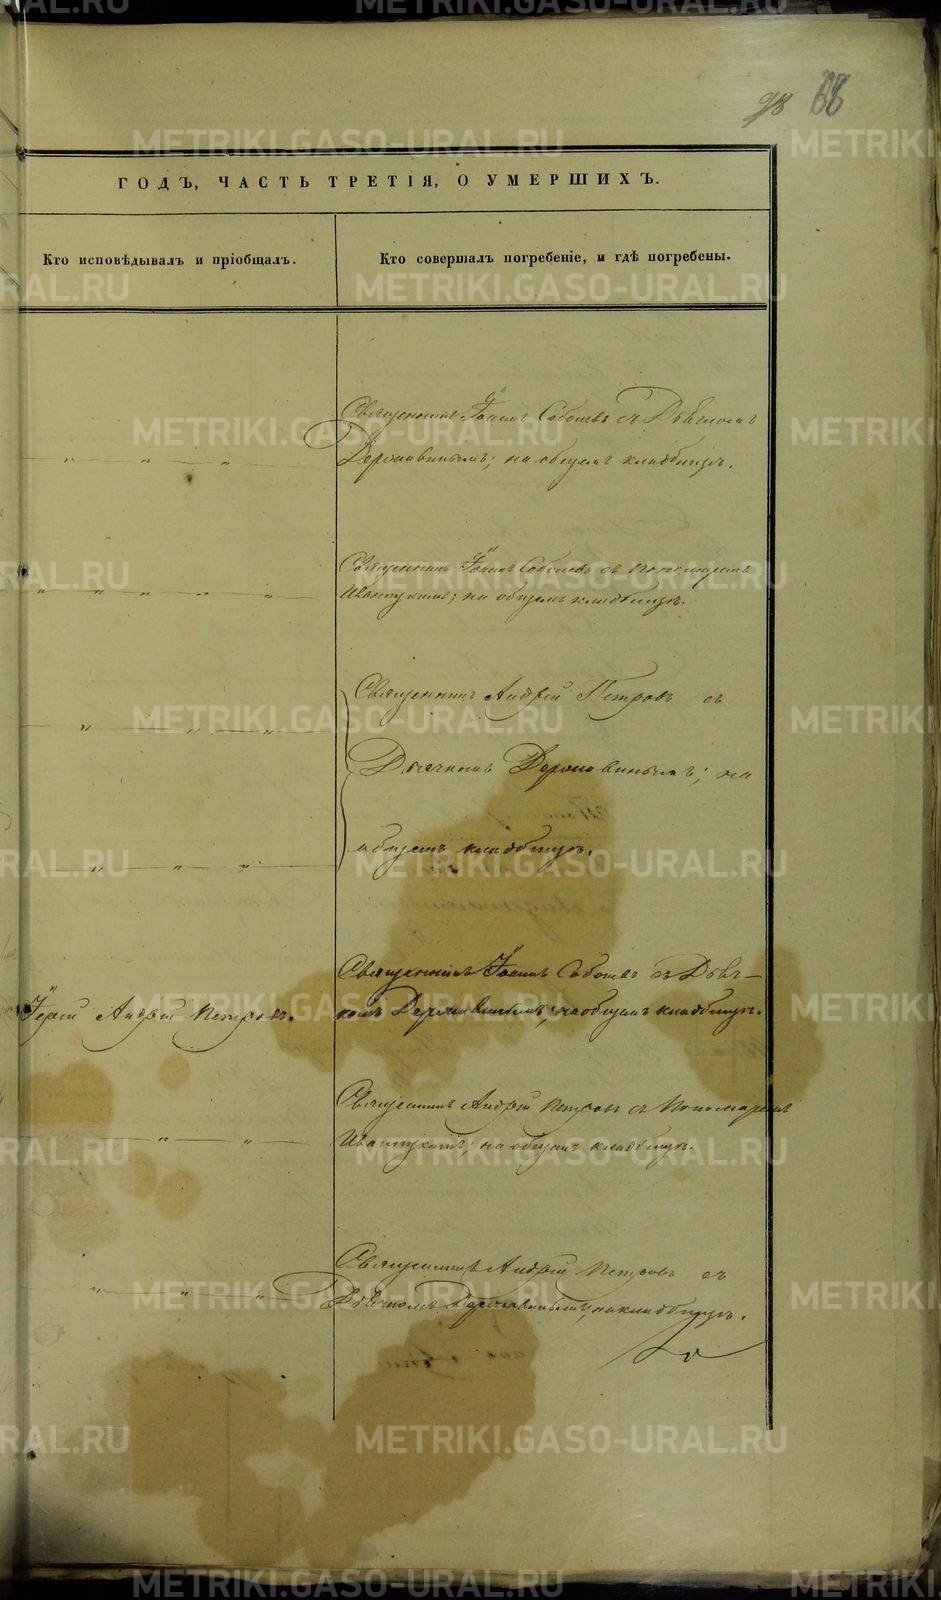 98 68
ГОДЪ, ЧАСТЬ ТРЕТІЯ, О УМЕРШИХЪ.
Кто исповѣдывалъ и пріобщалъ.
Кто совершалъ погребеніе, и гдѣ погребены.
Священникъ Іоаннъ Соболевъ съ Дьячкомъ
" " " Державинымъ; на общемъ кладбищѣ.
Священникъ Іоаннъ Соболевъ съ Пономаремъ
" " " " " на общемъ кладбищѣ.
Священникъ Андрей Петровъ съ
" " "
Дьячкомъ Державинымъ; на
общемъ кладбищѣ.
" " "
Священникъ Іоаннъ Соболевъ съ Дьяч-
Іерей Андрей Петровъ. комъ Державинымъ; на общемъ кладбищѣ.
Священникъ Андрей Петровъ съ Пономаремъ
" " на общемъ кладбищѣ.
Священникъ Андрей Петровъ съ
" " " Дьячкомъ Державинымъ; на кладбищѣ.
METRIKI.GASO-URAL.RU